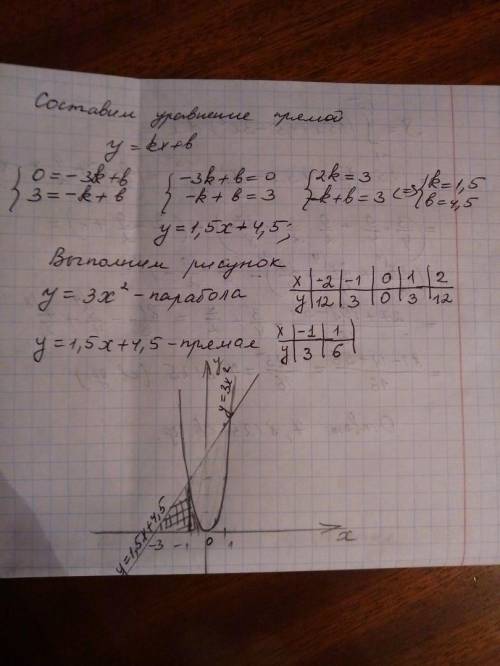 Составим уравнение прямой
y = kx+b
{ 0 = -3k+b { -3k+b = 0 { 2k = 3 <=> { k = 1,5
{ 3 = -k+b { -k+b = 3 { -k+b = 3 { b = 4,5
y = 1,5x+4,5;
Выполним рисунок
y = 3x² - парабола x | -2 | -1 | 0 | 1 | 2
y | 12 | 3 | 0 | 3 | 12
y = 1,5x+4,5 - прямая x | -1 | 1
y | 3 | 6
y
y = 3x²
y = 1,5x+4,5
-3 -1 0 1 x